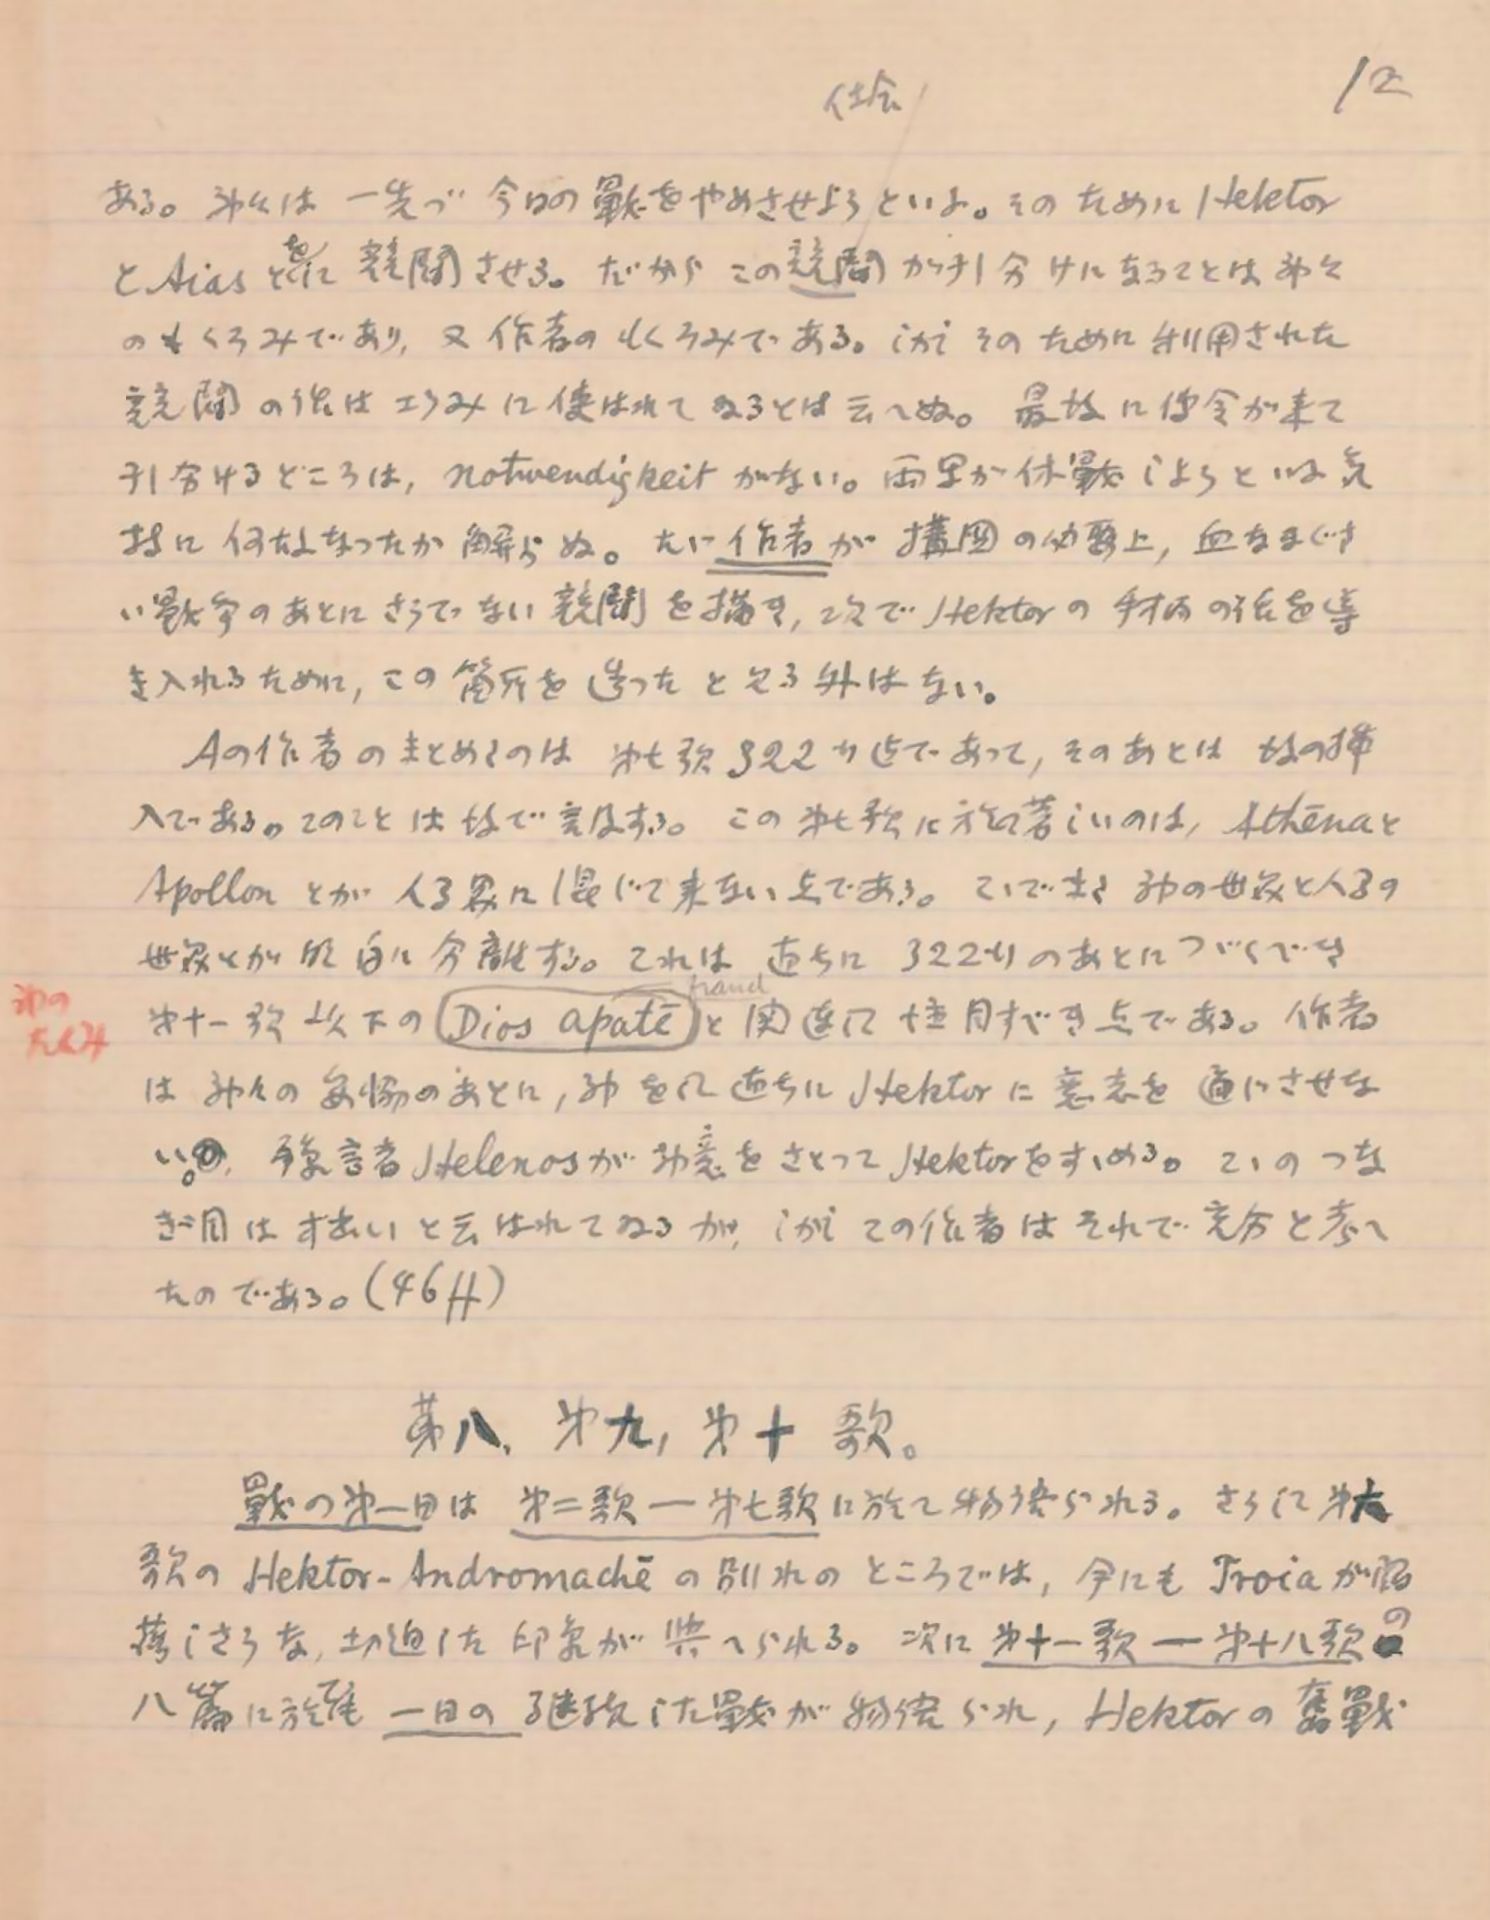 仕合
12
ある。神々は一先づ今日の戰をやめさせようといふ。そのために Hektor
と Aias とを 競闘させる。だからこの競闘が引分けになることは神々
のもくろみであり、又作者のもくろみである。しかしそのために利用された
競闘の話は巧みに使はれてゐるとは云へぬ。最後に使令が来て
引分けるところは、Notwendigkeit がない。両軍が休戰しようといふ気
持に何故なったか解らぬ。たゞ作者が構図の必要上、血なまぐさ
い戰争のあとにさうでない競闘を描き、次で Hektor の手柄の話を導
き入れるために、この箇所を造ったと見る外はない。
Aの作者のまとめたのは 第七歌322り迄であって、そのあとは後の挿
入である。このことは後で言及する。この第七歌に於て著しいのは、Athēna と
Apollon とが人間界に混じて来ない点である。こゝでまた神の世界と人間の
世界とが明白に分離する。これは直ちに322りのあとにつゞくべき
第十一歌以下の Dios apatē と関連して注目すべき点である。作者
fraud
神の
たくみ
は神々の妥協のあとに、神をして直ちに Hektor に意志を通じさせな
い。予言者 Helenos が神意をさとって Hektor をすゝめる。こゝのつな
ぎ目はずゐいと云はれてゐるが、しかしこの作者はそれで充分と考へ
たのである。(46ff)
第八、第九、第十歌。
戰の第一日は 第二歌ー第七歌に於て物語られる。さうして第六
歌の Hektor-Andromachē の別れのところでは、今にも Troia が陥
落しさうな、切迫した印象が與へられる。次に第十一歌ー第十八歌の
八篇に於ても一日の継続した戰が物語られ、Hektor の奮戰